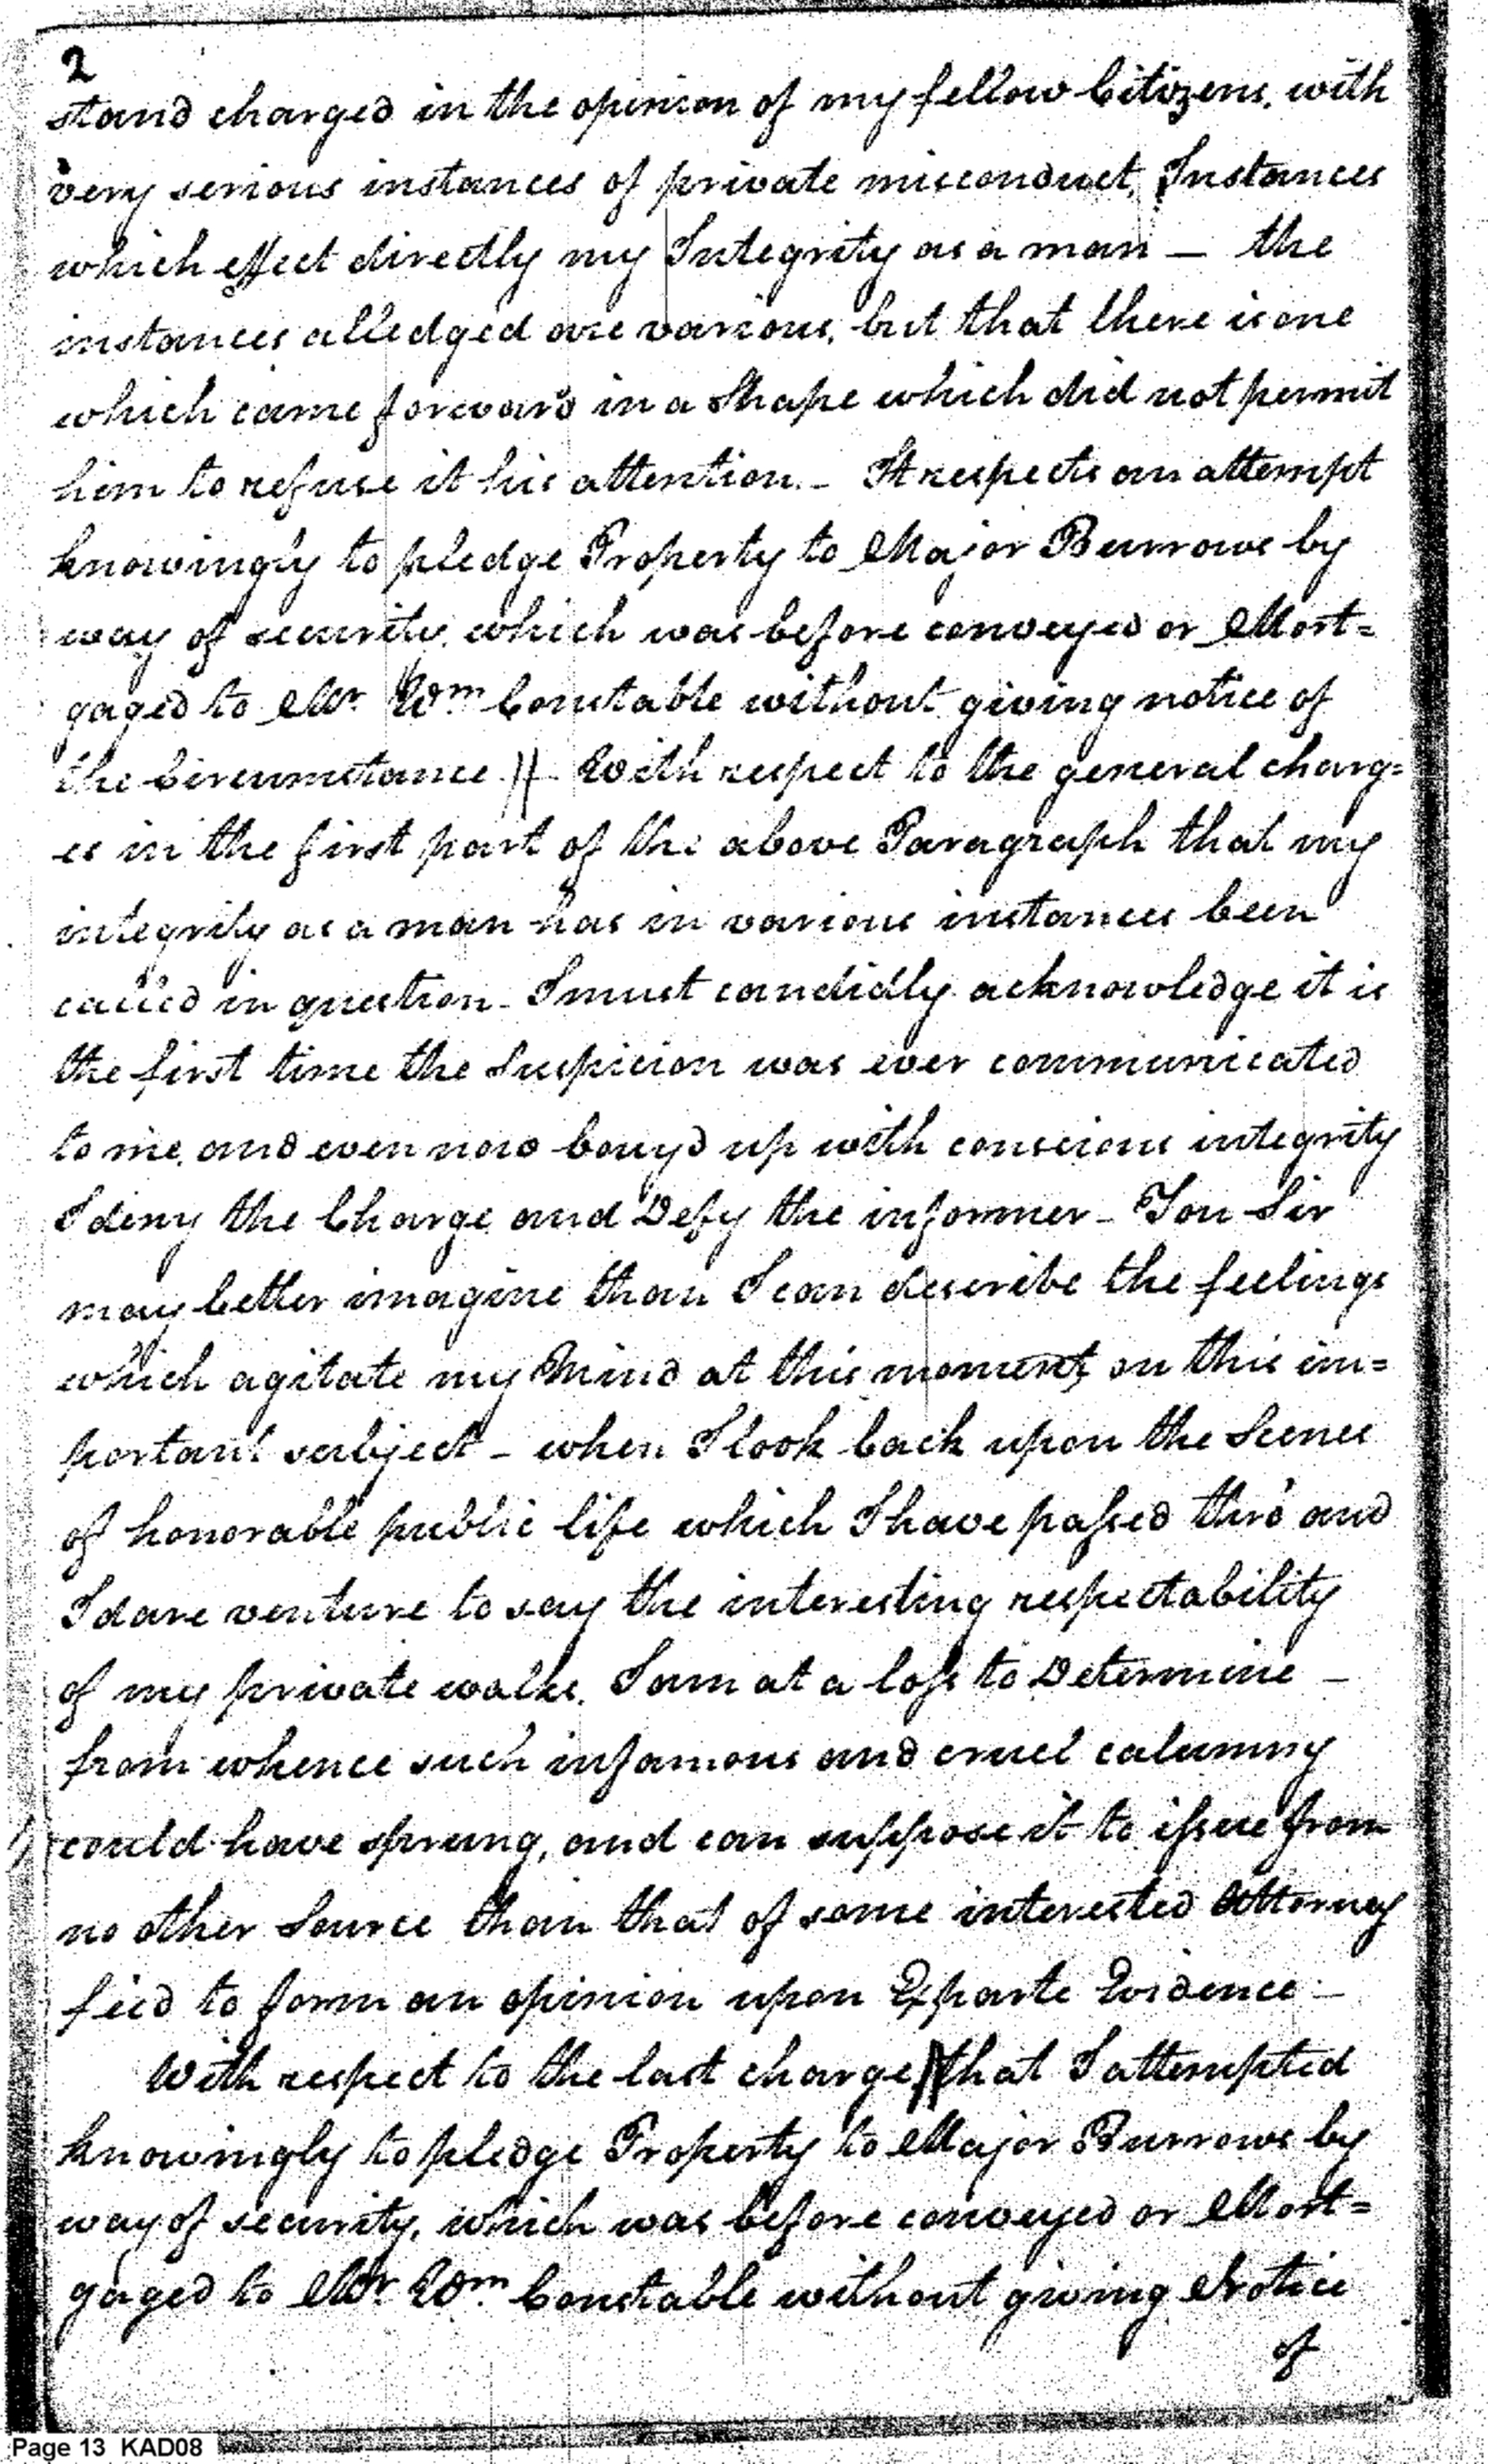 2
stand charged in the opinion of my fellow Citizens, with
very serious instances of private misconduct, Instances
which effect directly my Integrity as a man — the
instances alledged are various, but that there is one
which came forward in a Shape which did not permit
him to refuse it his attention. - It respects an attempt
knowingly to pledge Property to Major Burrows by
way of security, which was before conveyed or Mort=
gaged to Mr. Wm Constable without giving notice of
the Circumstance // - With respect to the general charg=
es in the first part of the above Paragraph that my
integrity as a man has in various instances been
called in question - I must candidly acknowledge it is
the first time the Suspicion was ever communicated
to me, and even now bouy'd up with conscious integrity
I deny the Charge and Defy the informer - You Sir
may better imagine than I can describe the feelings
which agitate my Mind at this moment, on this im=
portant subject - when I look back upon the Scenes
of honorable public life which I have passed thro' and
I dare venture to say the interesting respectability
of my private walks, I am at a loss to Determine -
from whence such infamous and cruel calumny
could have sprung, and can suppose it to issue from
no other Source than that of some interested Attorney
fee'd to form an opinion upon Exparte Evidence -
With respect to the last charge // that I attempted
knowingly to pledge Property to Major Burrows by
way of security, which was before conveyed or Mort=
gaged to Mr. Wm. Constable without giving Notice
of
Page 13 KAD08